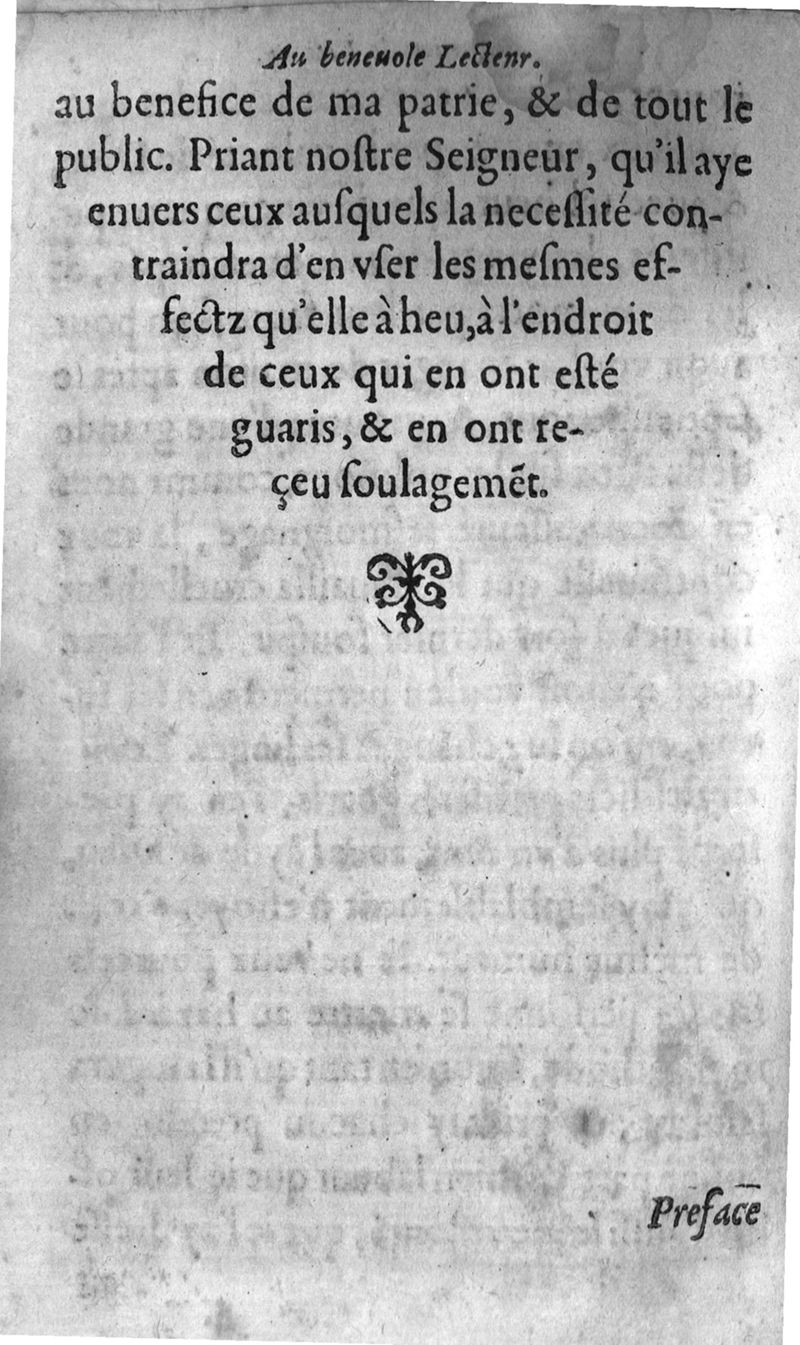 Au beneuole Lecteur.
au benefice de ma patrie, & de tout le
public. Priant noſtre Seigneur, qu'il aye
enuers ceux auſquels la neceſſité con-
traindra d'en vſer les meſmes ef-
fectz qu'elle à heu, à l'endroit
de ceux qui en ont eſté
guaris, & en ont re-
çeu ſoulagemẽt.
Preface